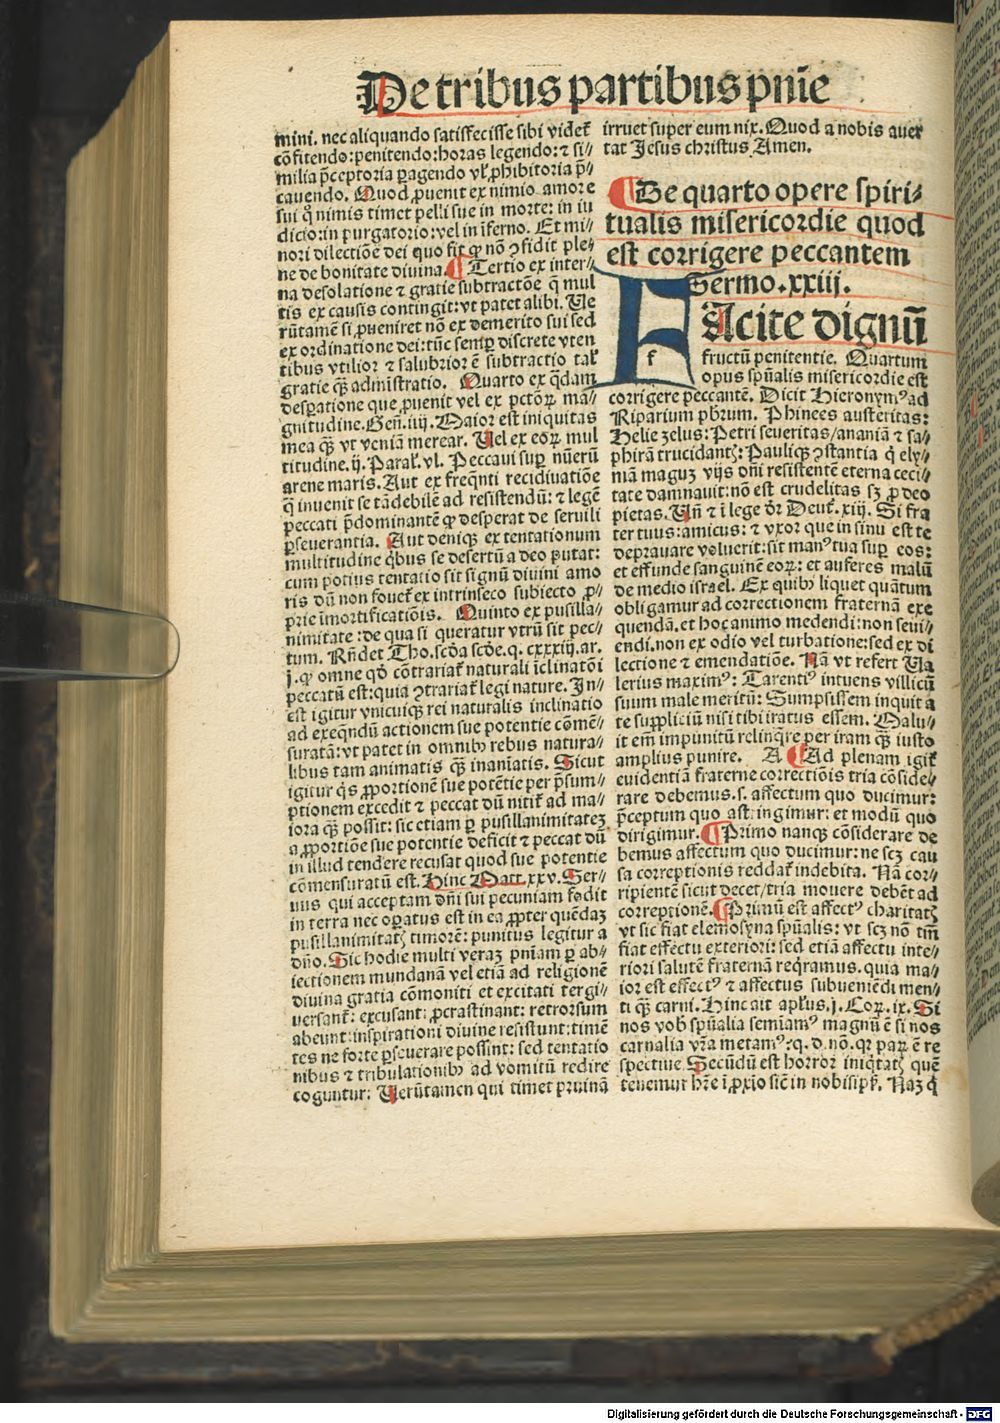 De tribus partibus pnīe
mini. nec aliquando satisfecisse sibi videt᷑
cōfitendo: penitendo: horas legendo: ⁊ si⸗
milia p̄ceptoria ꝑagendo vl᷑ ꝓhibitoria p̄⸗
cauendo. Quod ꝓuenit ex nimio amore
sui q̇ nimis timet pelli sue in morte: in iu
dicio: in purgatorio: vel in īferno. Et mi⸗
nori dilectiōe dei quo fit ꝙ nō ꝯfidit ple⸗
ne de bonitate diuina. ¶ Tertio ex inter⸗
na desolatione ⁊ gratie subtractōe q̇ mul
tis ex causis contingit: vt patet alibi. Ue
rūtamē si ꝓueniret nō ex demerito sui sed
ex ordinatione dei: tūc semꝑ discrete vten
tibus vtilior ⁊ salubrior ē subtractio tal᷑
gratie qꝫ̄ admīstratio. Quarto ex q̇dam
desꝑatione que ꝓuenit vel ex pctōꝝ ma⸗
gnitudine. Gen̄. iiij. Maior est iniquitas
mea qꝫ̄ vt veniā merear. Uel ex eoꝝ mul
titudine. ij. Paral᷑. vl. Peccaui suꝑ nūerū
arene maris. Aut ex freq̄nti recidiuatiōe
q̇ inuenit se tā debilē ad resistendū: ⁊ legē
peccati p̄dominantē ꝙ desperat de seruili
ꝑseuerantia. Aut deniqꝫ ex tentationum
multitudine q̇bus se desertū a deo putat:
cum potius tentatio sit signū diuini amo
ris dū non fouet᷑ ex intrinseco subiecto ꝓ⸗
prie īmortificatiōis. Quinto ex pusilla⸗
nimitate: de qua si queratur vtrū sit pec⸗
tum. Rn̄det Tho. scḋa scḋe. q. cxxxiij. ar.
j. ꝙ omne qḋ cōtrariat᷑ naturali īclinatōi
peccatū est: quia ꝯtrariat᷑ legi nature. In⸗
est igitur vnicuiqꝫ rei naturalis inclinatio
ad exeq̄ndū actionem sue potentie cōmē⸗
suratā: vt patet in omnibꝫ rebus natura⸗
libus tam animatis qꝫ̄ inaniatis. Sicut
igitur q̇s ꝓportionē sue potētie per p̄sum⸗
ptionem excedit ⁊ peccat dū nitit᷑ ad ma⸗
iora qꝫ̄ possit: sic etiam ꝑ pusillanimitatēꝫ
a ꝓportiōe sue potentie deficit ⁊ peccat dū
in illud tendere recusat quod sue potentie
cōmensuratū est. Hinc Matt. xxv. Ser⸗
uus qui acceptam dn̄i sui pecuniam fodit
in terra nec oꝑatus est in ea ꝓpter quēdaꝫ
pusillanimitatꝭ timorē: punitus legitur a
dn̄o. Sic hodie multi veraꝫ pn̄iam ꝑ ab⸗
iectionem mundanā vel etiā ad religionē
diuina gratia cōmoniti et excitati tergi⸗
uersant᷑: excusant: ꝓcrastinant: retrorsum
abeunt: inspirationi diuine resistunt: timē
tes ne forte ꝑseuerare possint: sed tentatio
nibus ⁊ tribulationibꝫ ad vomitū redire
coguntur: Uerūtamen qui timet pruinā
irruet super eum nix. Quod a nobis auer
tat Jesus christus Amen.
¶ De quarto opere spiri⸗
tualis misericordie quod
est corrigere peccantem
Sermo. xxiij.
f
FAcite dignū
fructū penitentie. Quartum
opus spūalis misericordie est
corrigere peccantē. Dicit Hieronymꝰ ad
Riparium pbr̄um. Phinees austeritas:
Helie zelus: Petri seueritas/ ananiā ⁊ sa⸗
phirā trucidantꝭ: Pauliqꝫ ꝯstantia q̇ ely⸗
mā maguꝫ vijs dn̄i resistentē eterna ceci⸗
tate damnauit: nō est crudelitas sꝫ ꝓ deo
pietas. Un̄ ⁊ ī lege dr̄ Deut᷑. xiij. Si fra
ter tuus: amicus: ⁊ vxor que in sinu est te
deprauare voluerit: sit manꝰ tua suꝑ eos:
et effunde sanguinē eoꝝ: et auferes malū
de medio israel. Ex quibꝫ liquet quātum
obligamur ad correctionem fraternā exe
quendā. et hoc animo medendi: non seui⸗
endi. non ex odio vel turbatione: sed ex di
lectione ⁊ emendatiōe. Nā vt refert Ua
lerius maximꝰ: Tarentiꝰ intuens villicū
suum male meritū: Sumpsissem inquit a
te suppliciū nisi tibi iratus essem. Malu⸗
it em̄ impunitū relinq̄re per iram qꝫ̄ iusto
amplius punire. A ¶ Ad plenam igit᷑
euidentiā fraterne correctiōis tria cōside⸗
rare debemus. s. affectum quo ducimur:
p̄ceptum quo astringimur: et modū quo
dirigimur. ¶ Primo nanqꝫ cōsiderare de
bemus affectum quo ducimur: ne scꝫ cau
sa correptionis reddat᷑ indebita. Nā cor⸗
ripientē sicut decet/ tria mouere debēt ad
correptionē. ¶ Primū est affectꝰ charitatꝭ
vt sic fiat elemosyna spūalis: vt scꝫ nō tm̄
fiat effectu exteriori: sed etiā affectu inte⸗
riori salutē fraternā req̇ramus. quia ma⸗
ior est effectꝰ ⁊ affectus subueniēdi men⸗
ti qꝫ̄ carni. Hinc ait apl᷑us. j. Coꝝ. ix. Si
nos vobꝭ spūalia semiāmꝰ magnū ē si nos
carnalia vr̄a metamꝰ: q. d. nō. qꝛ paꝝ ē re
spectiue. Secūdū est horror iniq̇tatꝭ quē
tenemur hr̄e ī ꝓxīo sic̄ in nobisipꝭ. Naꝫ q̇
Digitalisierung gefördert durch die Deutsche Forschungsgemeinschaft - DFG